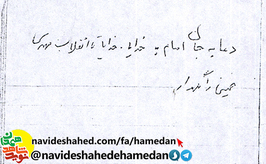 دعا به جان امام به خدایا، خدایا تا انقلاب مهدی
خمینی را نگهدار
navideshahed.com/fa/hamedan
@navideshahedehamedan